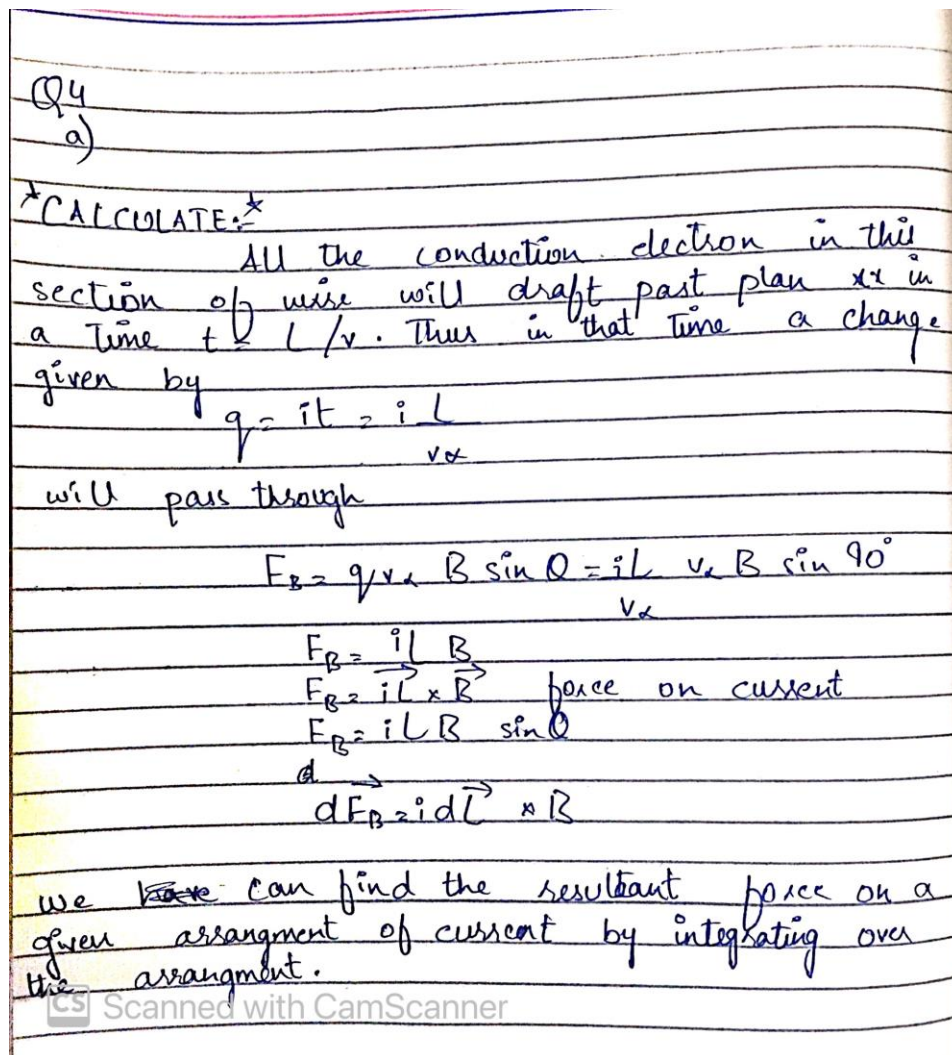 Q4
a)
*CALCULATE:-*
All the conduction electron in this
section of wire will draft past plan xx in
a Time t = L/v. Thus in that Time a change
given by
q = it = i L
vα
will pass through
F_B = q vα B sin Q = iL vα B sin 90°
vα
F_B = iL B
F_B = iL⃗ × B⃗ force on current
F_B = iLB sin Q
d
dF⃗_B = i dL⃗ × B
we can find the resultant force on a
given arrangment of current by integrating over
the arrangment.
CS Scanned with CamScanner